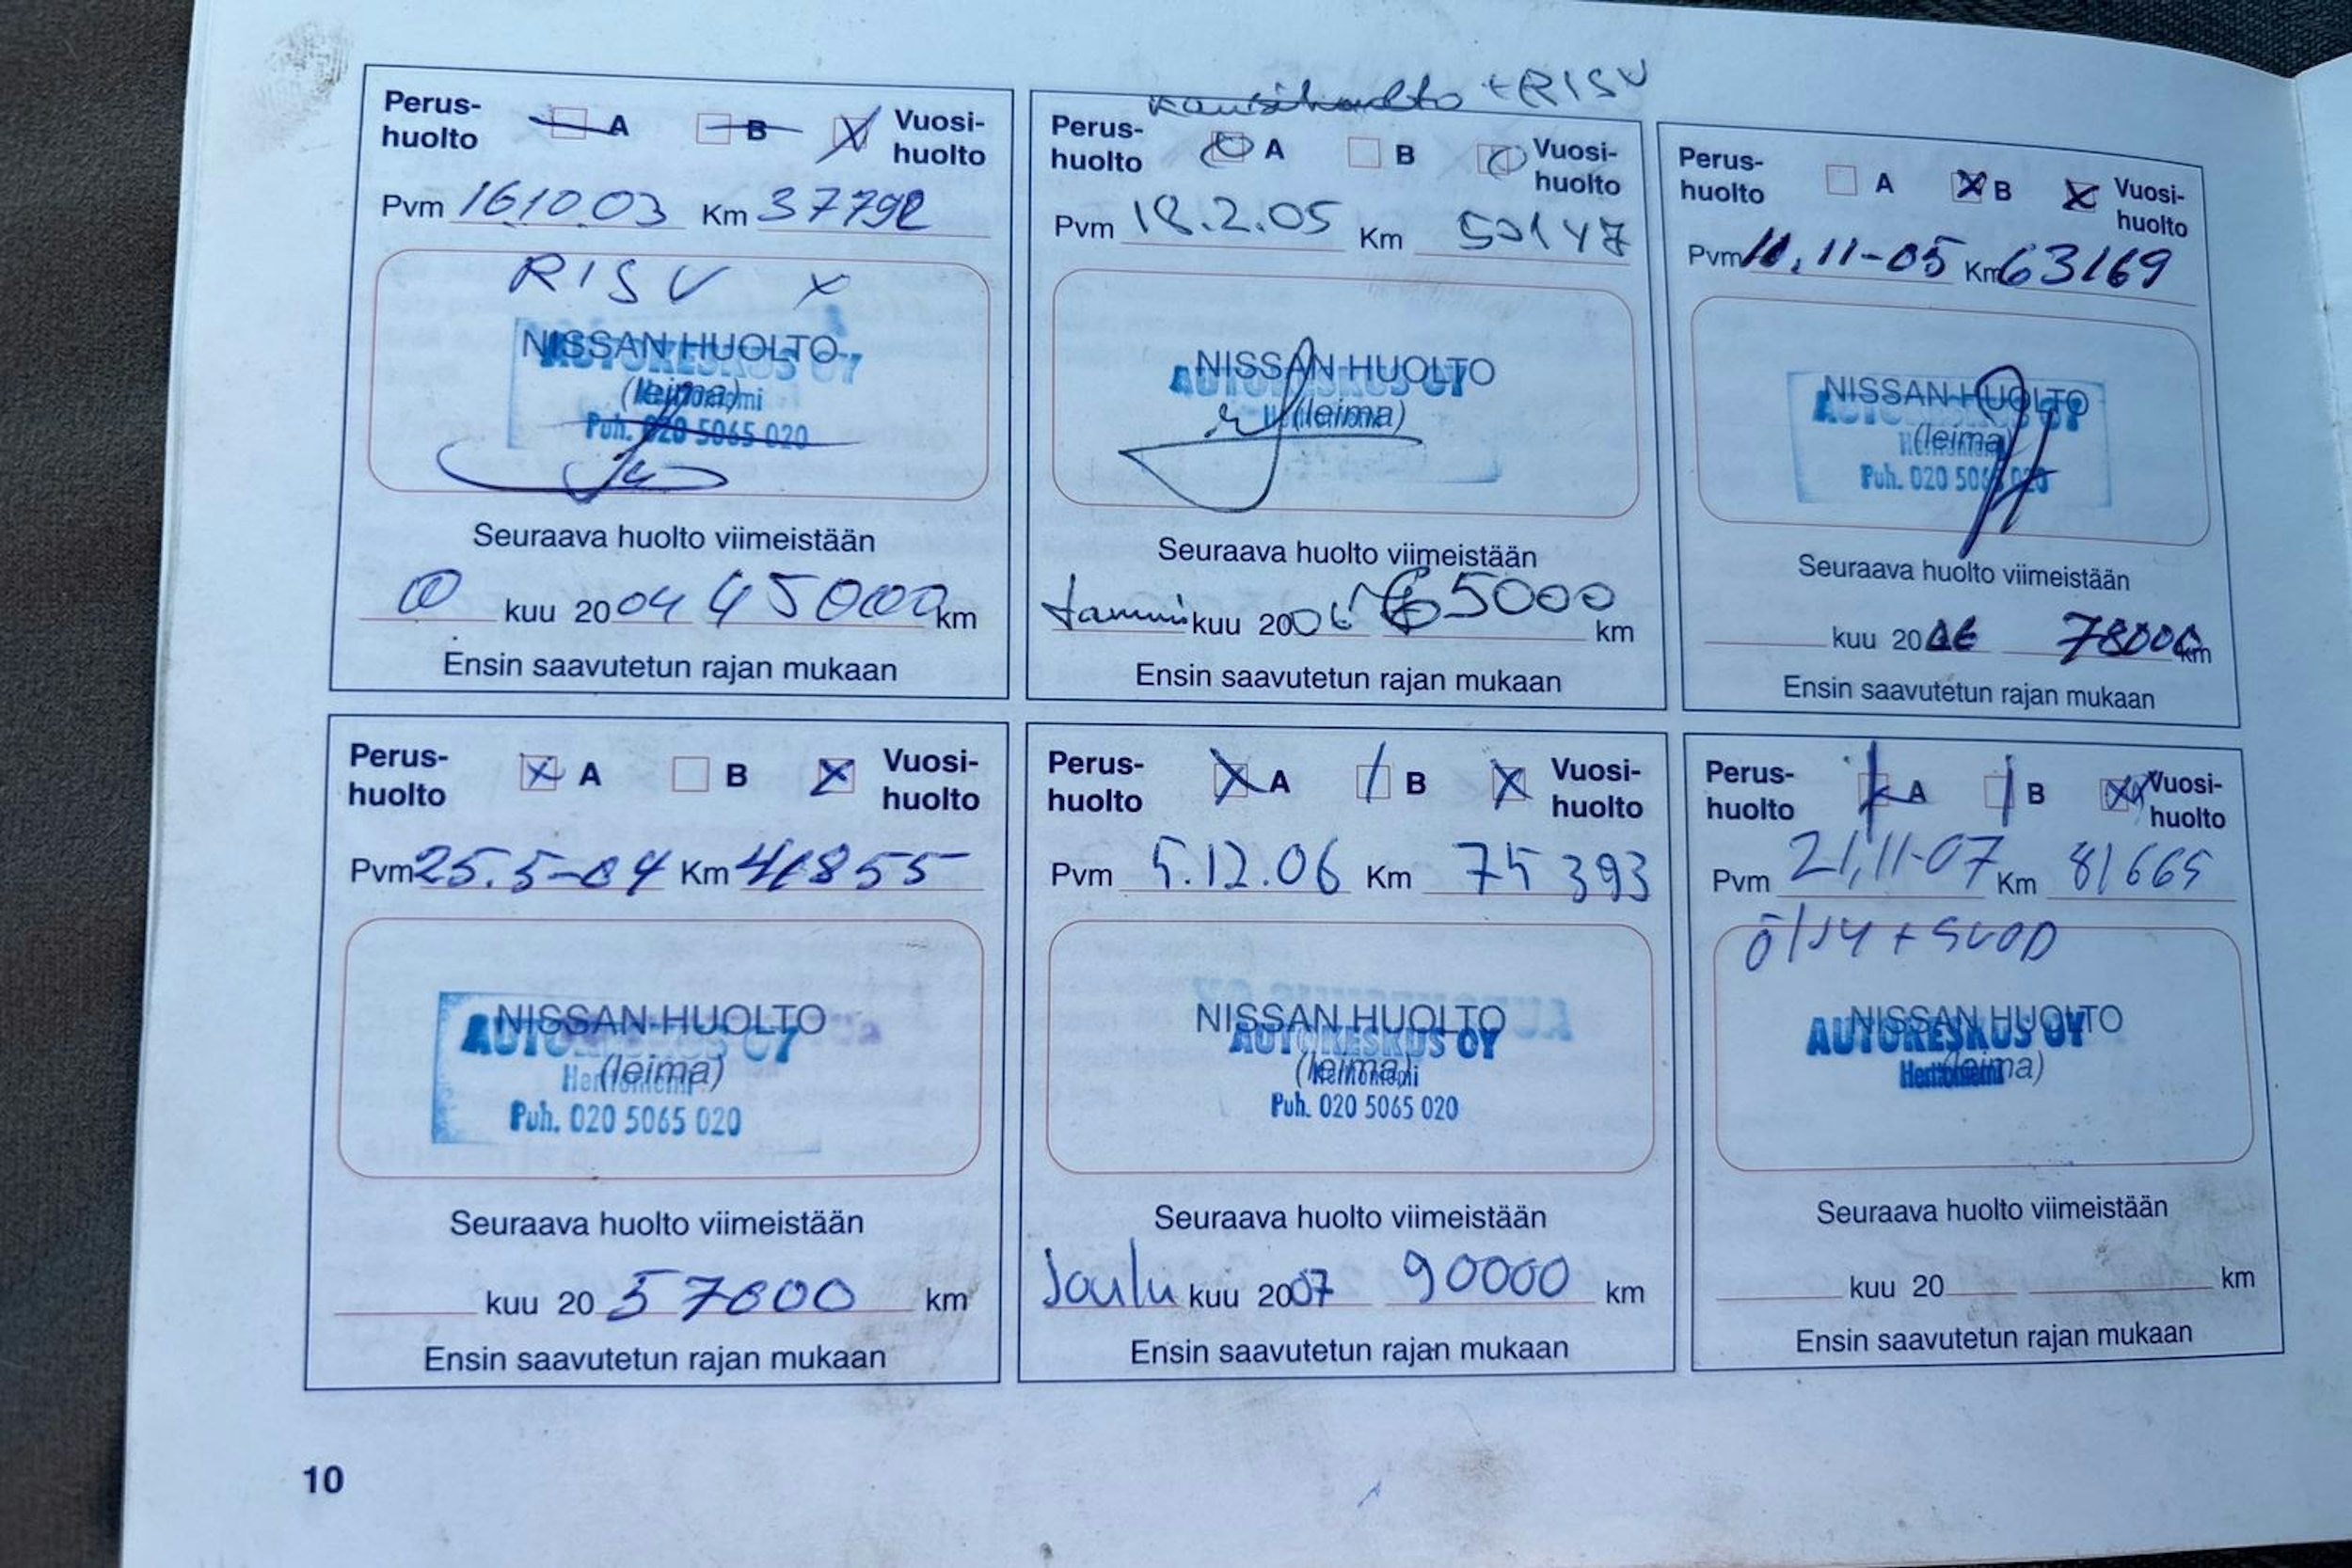 Perus-
huolto A B Vuosi-
huolto
Pvm 16.10.03 Km 37792
RISV X
NISSAN HUOLTO
AUTOKESKUS OY
(leima)
Puh. 020 5065 020
Seuraava huolto viimeistään
kuu 2004 45000 km
Ensin saavutetun rajan mukaan
+ RISV
Perus-
huolto A B Vuosi-
huolto
Pvm 18.2.05 Km 50147
NISSAN HUOLTO
AUTOKESKUS OY
(leima)
Seuraava huolto viimeistään
tammi kuu 2006 65000 km
Ensin saavutetun rajan mukaan
Perus-
huolto A B Vuosi-
huolto
Pvm 11.11-05 Km 63169
NISSAN HUOLTO
AUTOKESKUS OY
(leima)
Puh. 020 5065 020
Seuraava huolto viimeistään
kuu 2006 78000 km
Ensin saavutetun rajan mukaan
Perus-
huolto A B Vuosi-
huolto
Pvm 25.5-04 Km 41855
NISSAN HUOLTO
AUTOKESKUS OY
(leima)
Herttoniemi
Puh. 020 5065 020
Seuraava huolto viimeistään
kuu 20 57000 km
Ensin saavutetun rajan mukaan
Perus-
huolto A B Vuosi-
huolto
Pvm 5.12.06 Km 75393
NISSAN HUOLTO
AUTOKESKUS OY
(leima)
Herttoniemi
Puh. 020 5065 020
Seuraava huolto viimeistään
Joulu kuu 2007 90000 km
Ensin saavutetun rajan mukaan
Perus-
huolto A B Vuosi-
huolto
Pvm 21.11-07 Km 81665
öljy + suod
NISSAN HUOLTO
AUTOKESKUS OY
(leima)
Herttoniemi
Seuraava huolto viimeistään
kuu 20 km
Ensin saavutetun rajan mukaan
10